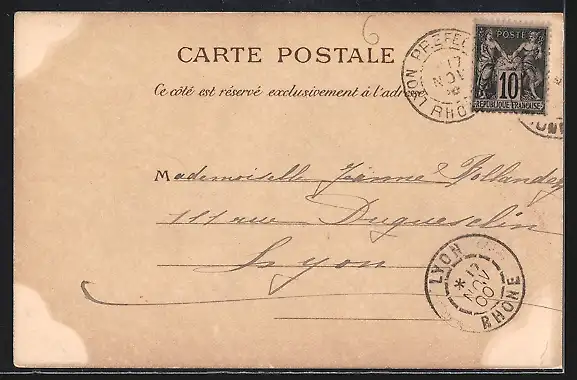 6
CARTE POSTALE
Ce côté est réservé exclusivement à l'adresse
LYON PREFEC
17
NOV
RHO
POSTE
10
REPUBLIQUE FRANÇAISE
Mademoiselle Jeanne Hollande
111 rue Duguesclin
Lyon
LYON
NOV
00
RHONE